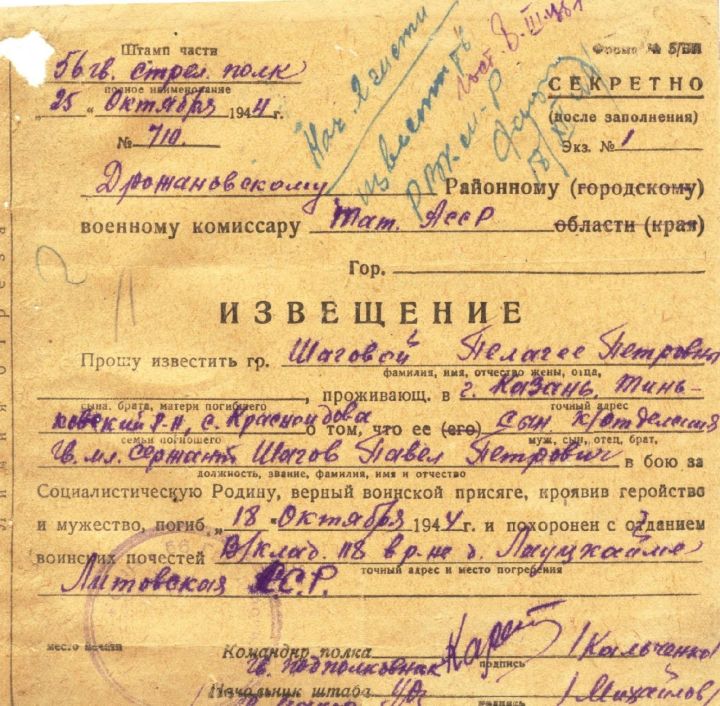 Штамп части
Форма № 5/БП
56 гв. стрел. полк
полное наименование
СЕКРЕТНО
"25" Октября 1944 г.
(после заполнения)
№ 710.
Экз. № 1
Нач 2 части
известить
Дрожановскому Районному (городскому)
военному комиссару Тат. АССР области (края)
Гор.
ИЗВЕЩЕНИЕ
Прошу известить гр. Шаговой Пелагее Петровны
фамилия, имя, отчество жены, отца,
, проживающ. в г. Казань, Тинь-
сына, брата, матери погибшего
точный адрес
ковский р-н, с. Красноидова о том, что ее (его) сын к/отделения
семьи погибшего
муж, сын, отец, брат,
Гв. мл. Сержант Шагов Павел Петрович в бою за
должность, звание, фамилия, имя и отчество
Социалистическую Родину, верный воинской присяге, проявив геройство
и мужество, погиб „18" Октября 1944 г. и похоронен с отданием
воинских почестей В/клад. пв в р-не д. Лауцкайме
точный адрес и место погребения
Литовская ССР.
место печати
Командир полка /Кальченко/
гв. подполковник
подпись
Начальник штаба /Михайлов/
подпись